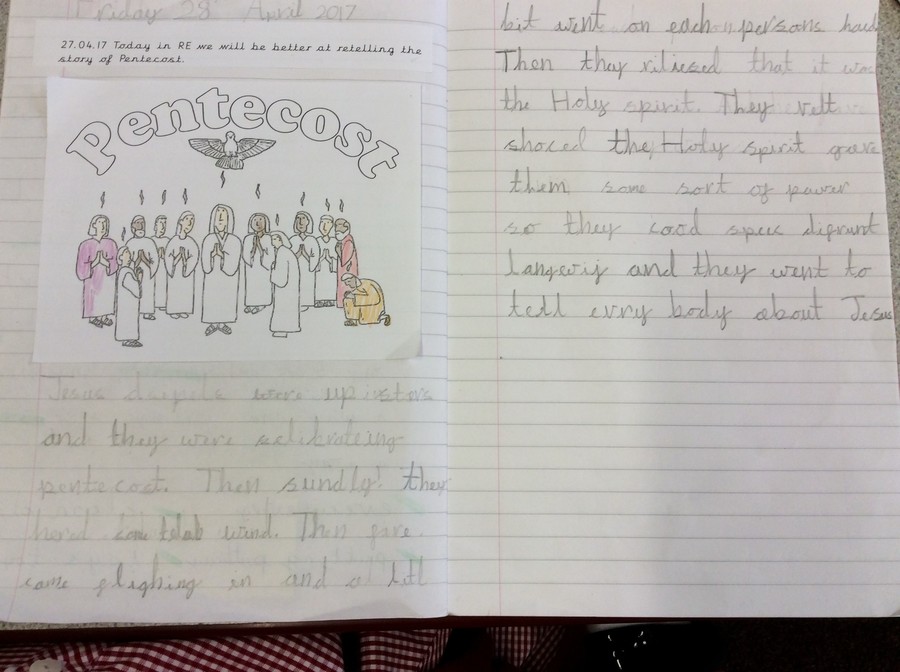 Friday 28 April 2017
27.04.17 Today in RE we will be better at retelling the
story of Pentecost.
Pentecost
Jesus were up
and they were
pentecost. Then sundly! they
herd wind. Then fire
came flighing in and a litl
bit went on each persons
Then they riliesed that it
the Holy spirit. They velt
shoced the Holy spirit gave
them some sort of pawer
so they cood speec
langwij and they went to
tell evry body about Jesus